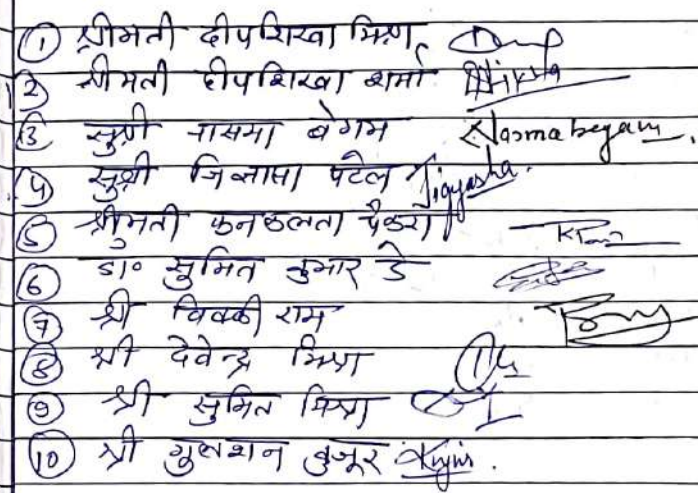 ① श्रीमती दीपशिखा मिश्रा
② श्रीमती दीपशिखा शर्मा
③ सुश्री नासमा बेगम Nasmabegam.
④ सुश्री जिज्ञासा पटेल Jigyasha.
⑤ श्रीमती कनकलता पैकरा
⑥ डा० सुमित कुमार डे
⑦ श्री विक्की राम
⑧ श्री देवेन्द्र मिश्रा
⑨ श्री सुमित मिश्रा
⑩ श्री गुलशन कुजूर